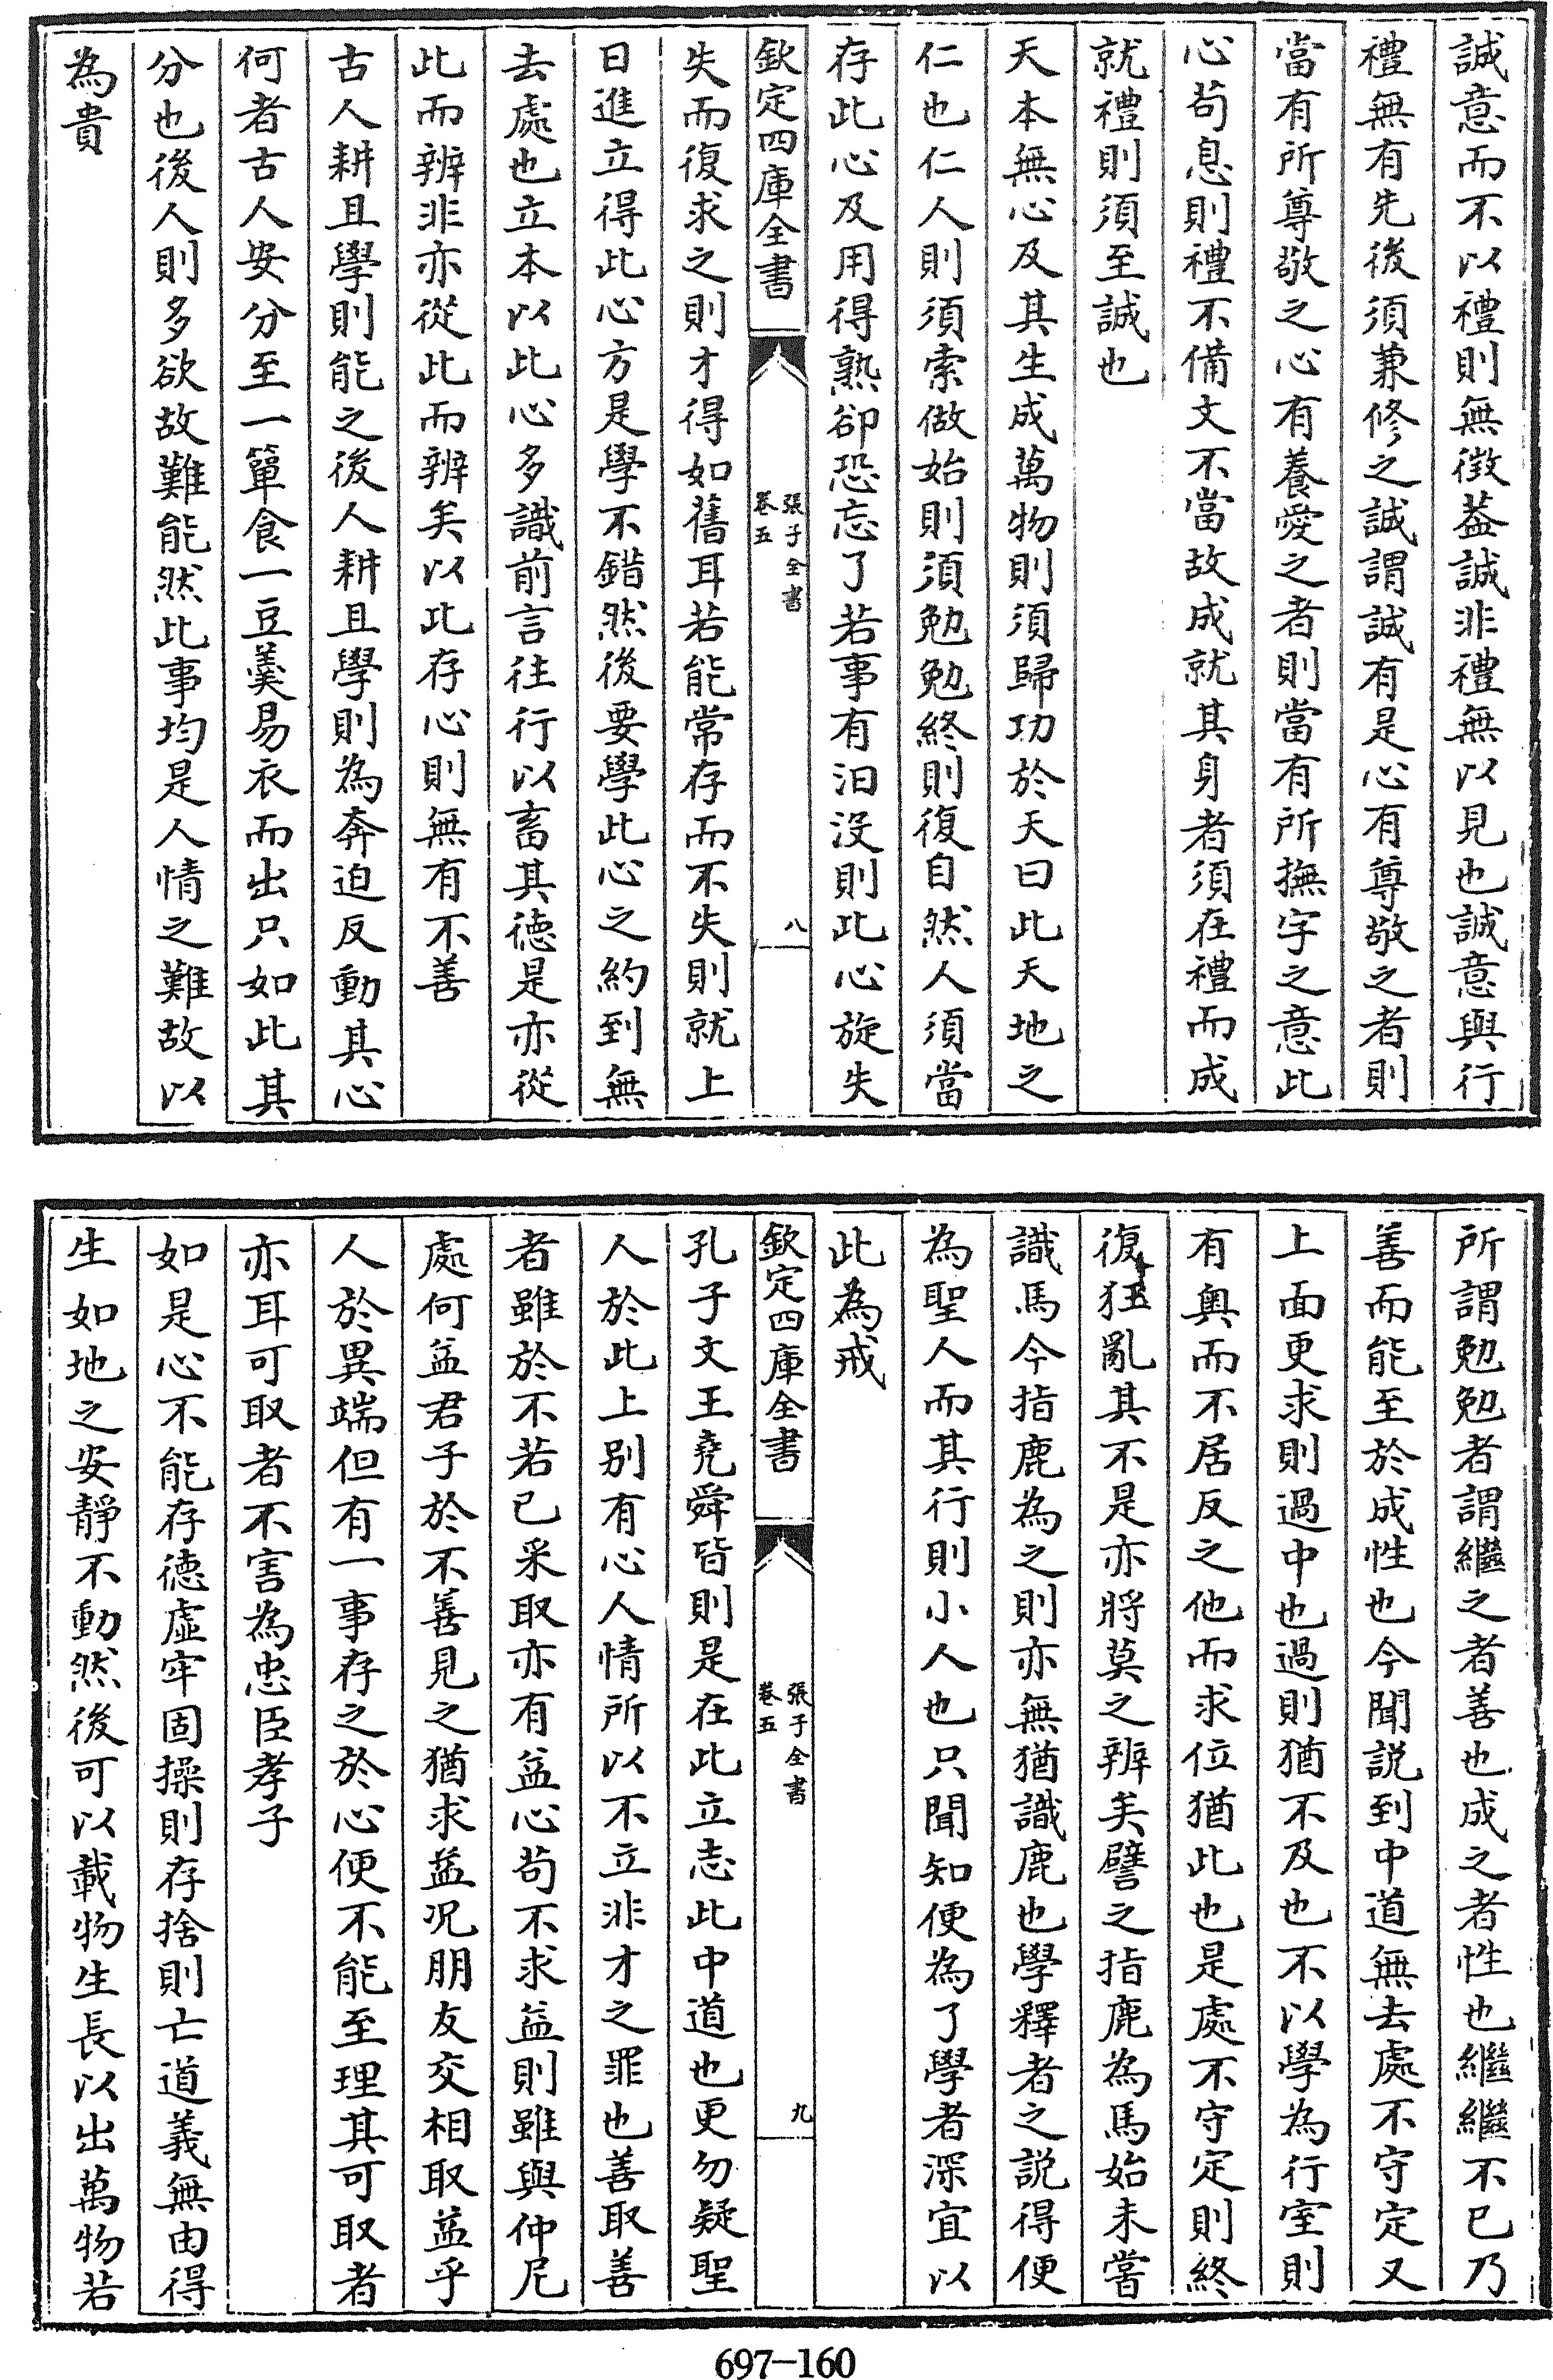 誠意而不以禮則無徴蓋誠非禮無以見也誠意與行
禮無有先後須兼修之誠謂誠有是心有尊敬之者則
當有所尊敬之心有養愛之者則當有所撫字之意此
心苟息則禮不備文不當故成就其身者須在禮而成
就禮則須至誠也
天本無心及其生成萬物則須歸功於天曰此天地之
仁也仁人則須索做始則須勉勉終則復自然人須當
存此心及用得熟卻恐忘了若事有汨没則此心旋失
欽定四庫全書
張子全書
卷五
八
失而復求之則才得如舊耳若能常存而不失則就上
日進立得此心方是學不錯然後要學此心之約到無
去處也立本以此心多識前言往行以畜其徳是亦從
此而辨非亦從此而辨矣以此存心則無有不善
古人耕且學則能之後人耕且學則為奔迫反動其心
何者古人安分至一簞食一豆羹易衣而出只如此其
分也後人則多欲故難能然此事均是人情之難故以
為貴
所謂勉勉者謂繼之者善也成之者性也繼繼不已乃
善而能至於成性也今聞説到中道無去處不守定又
上面更求則過中也過則猶不及也不以學為行室則
有奥而不居反之他而求位猶此也是處不守定則終
復狂亂其不是亦將莫之辨矣譬之指鹿為馬始未嘗
識馬今指鹿為之則亦無猶識鹿也學釋者之説得便
為聖人而其行則小人也只聞知便為了學者深宜以
此為戒
欽定四庫全書
張子全書
卷五
九
孔子文王堯舜皆則是在此立志此中道也更勿疑聖
人於此上别有心人情所以不立非才之罪也善取善
者雖於不若己采取亦有益心苟不求益則雖與仲尼
處何益君子於不善見之猶求益况朋友交相取益乎
人於異端但有一事存之於心便不能至理其可取者
亦耳可取者不害為忠臣孝子
如是心不能存徳虚牢固操則存捨則亡道義無由得
生如地之安靜不動然後可以載物生長以出萬物若
697-160